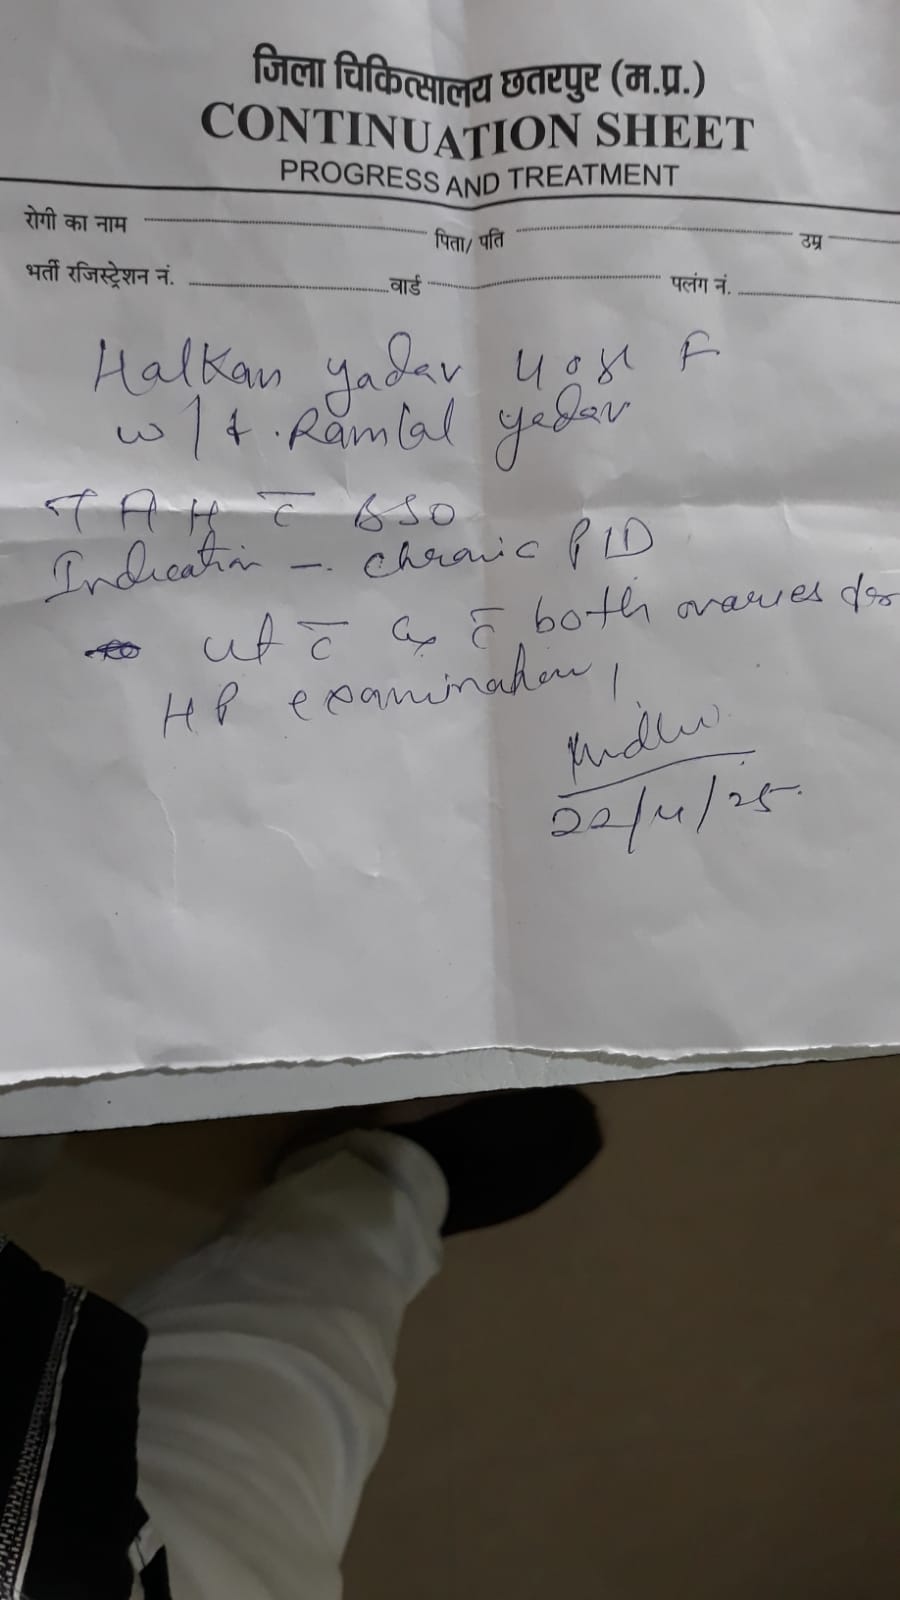 जिला चिकित्सालय छतरपुर (म.प्र.)
CONTINUATION SHEET
PROGRESS AND TREATMENT
रोगी का नाम पिता/ पति उम्र
भर्ती रजिस्ट्रेशन नं. वार्ड पलंग नं.
Halkan yadav F
Ramlal yadav
TAH c̅ BSO
Indication - chronic PID
ut c̅ cx c̅ both ovaries for
HP examination